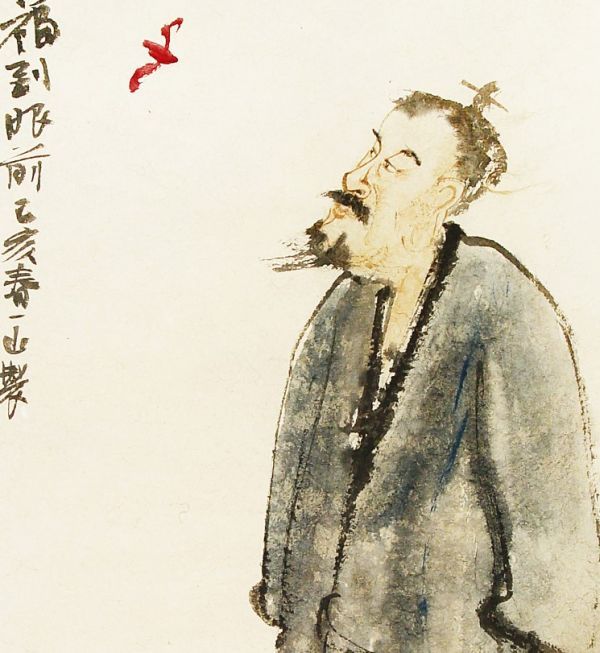 福到眼前己亥春一山製